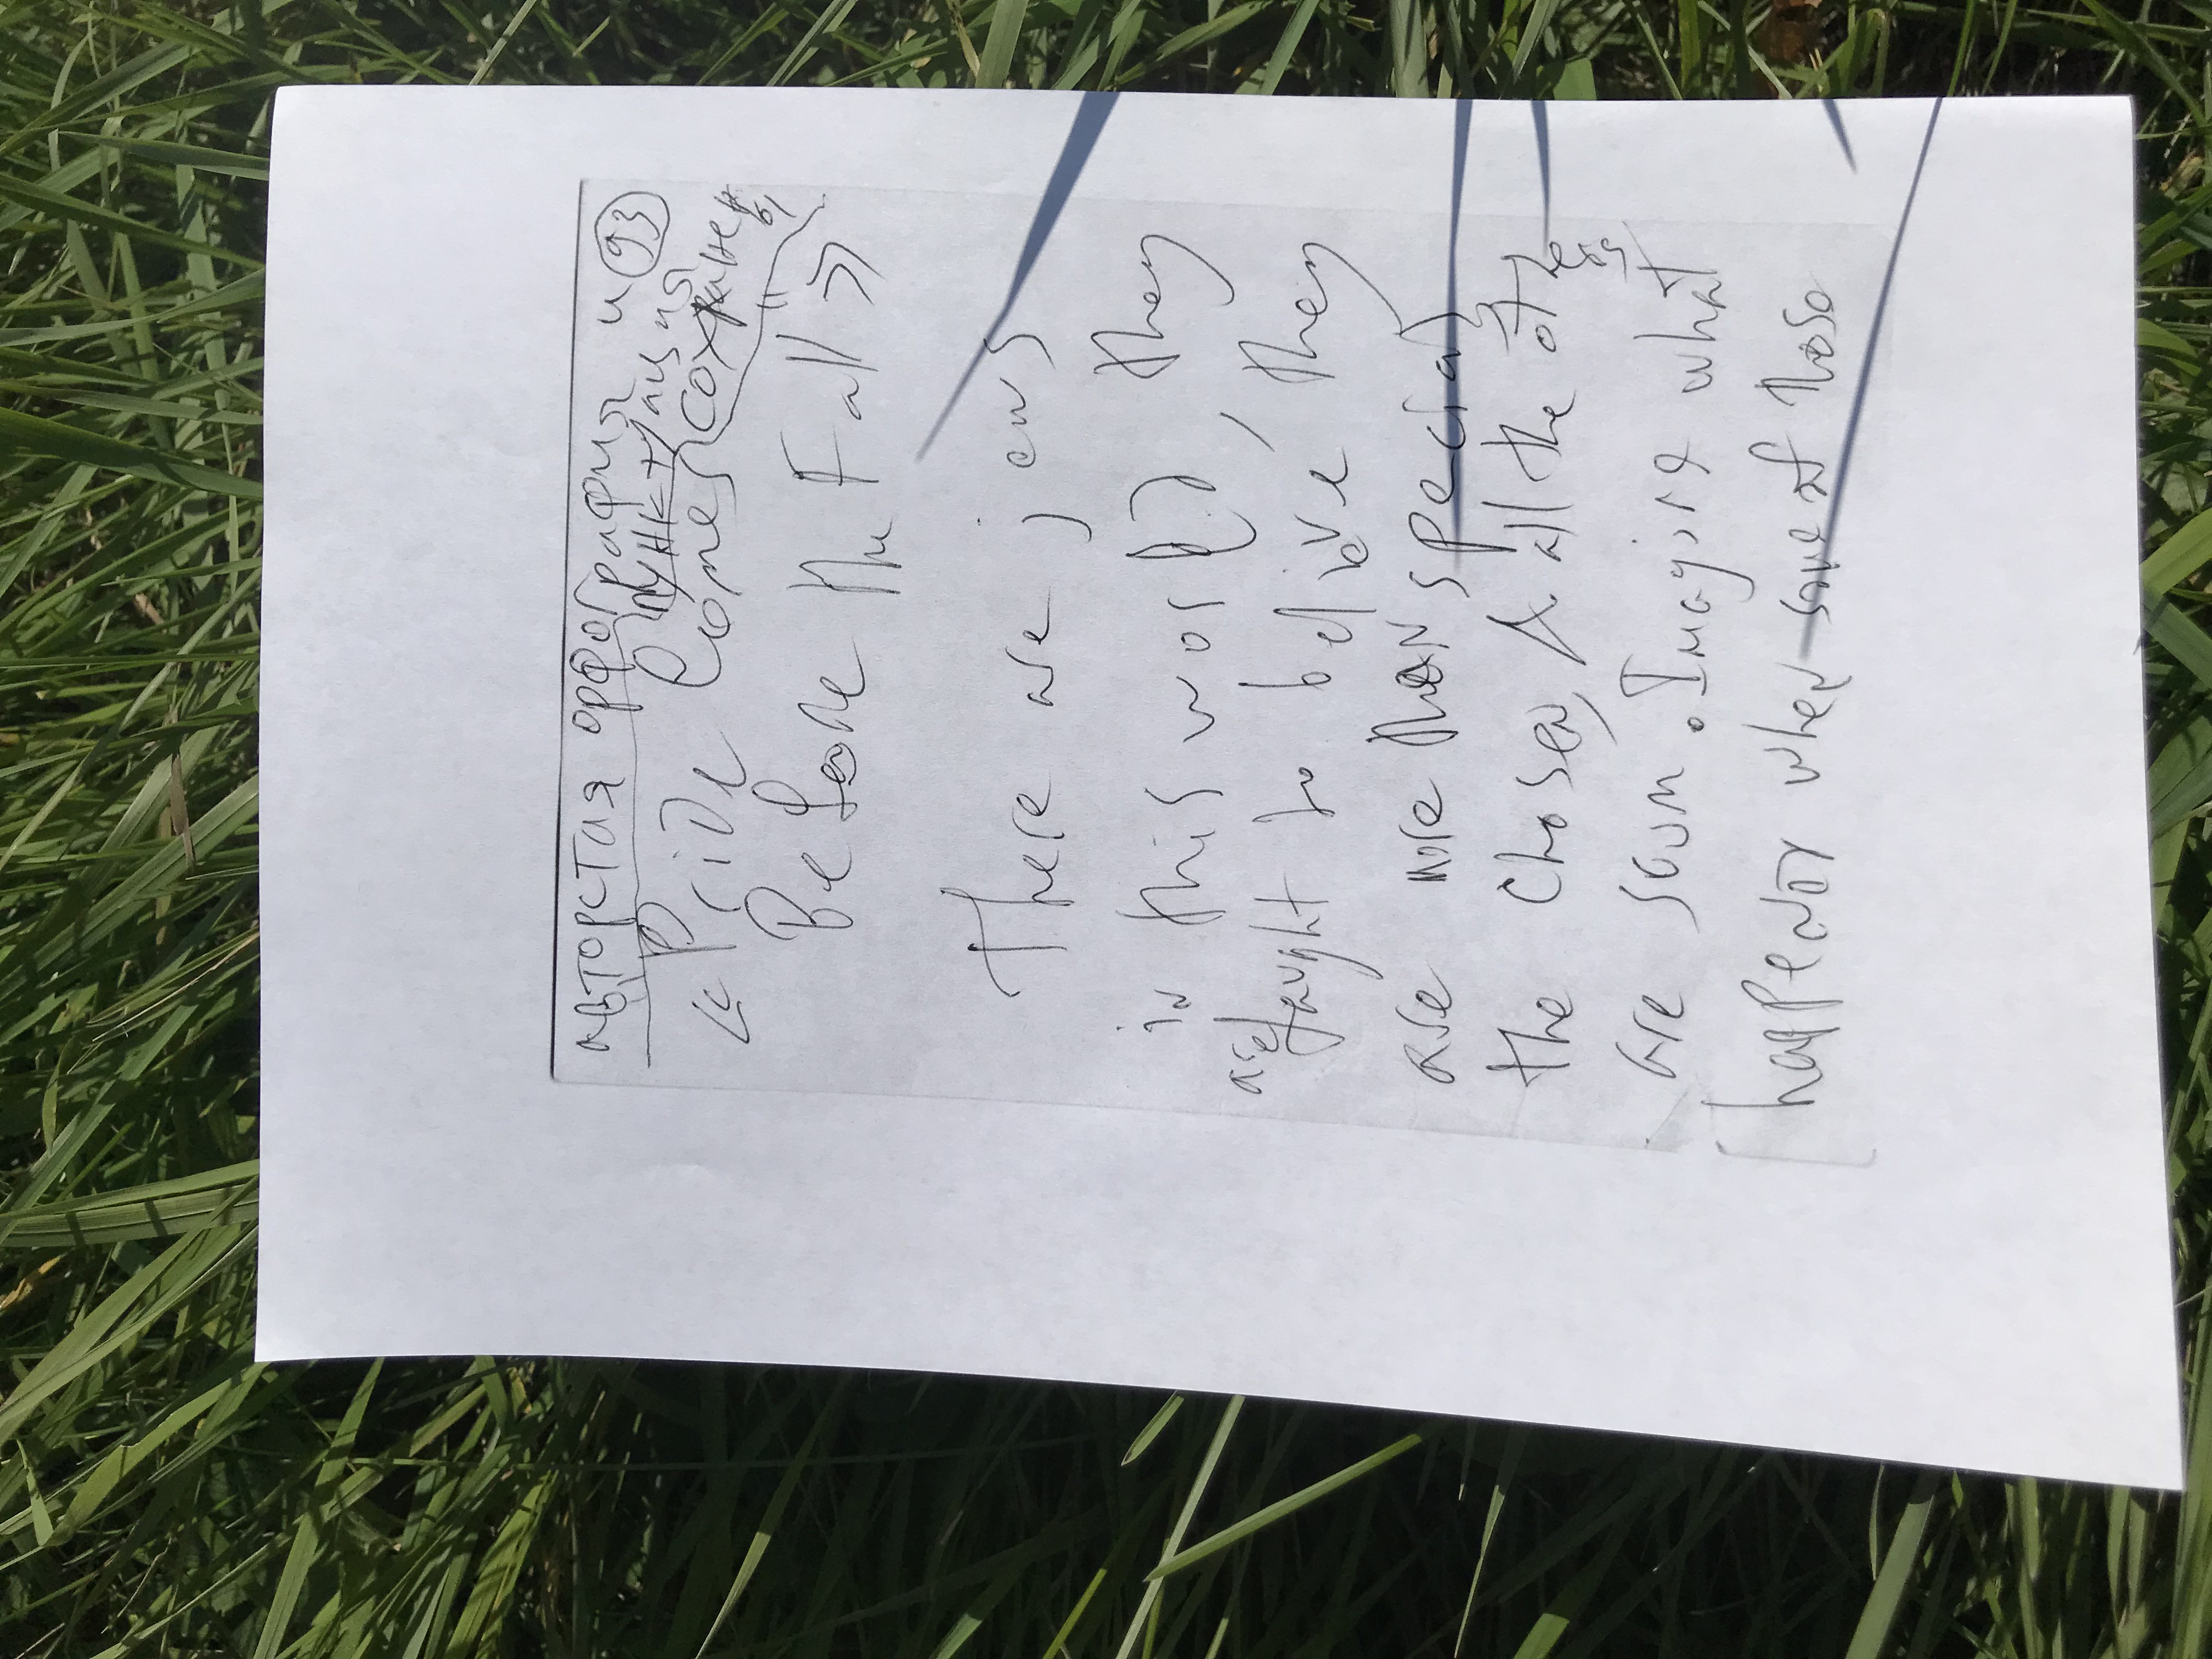 авторстая орфография и 93
пунктуация
сохранены
«Pride Comes
Before the Fall»
There are jews
in this world, they
are taught to believe they
are more than special,
the Chosen, & all the others
are scum. Imagine what
when some of those